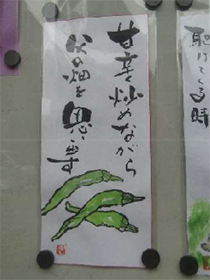 駈けてくる時
甘辛炒めながら
父の畑を思い出す